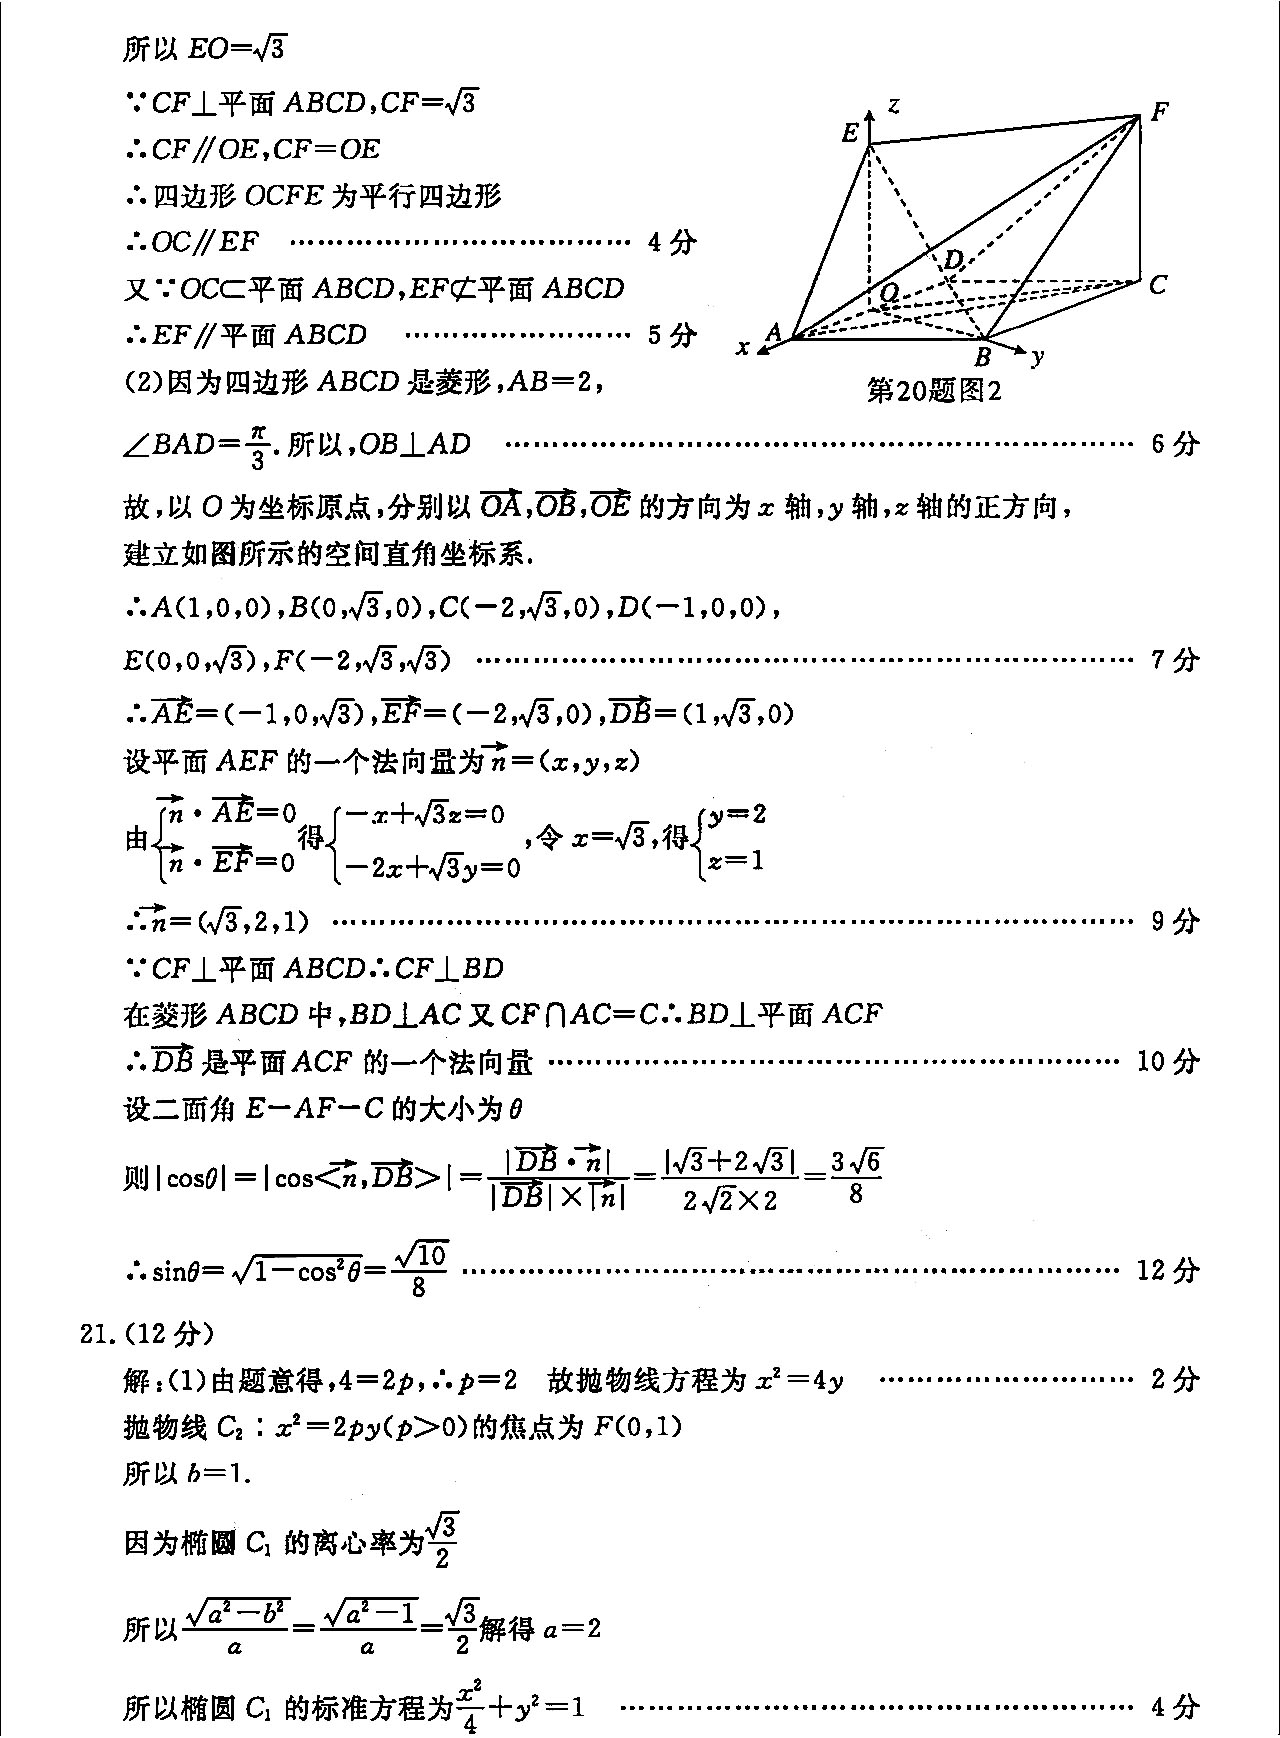 所以 EO=√3
∵CF⊥平面 ABCD,CF=√3
∴CF∥OE,CF=OE
∴四边形 OCFE 为平行四边形
∴OC∥EF ………………………………… 4 分
又∵OC⊂平面 ABCD,EF⊄平面 ABCD
∴EF∥平面 ABCD …………………… 5 分
z
E
F
D
C
O
A
B
x
y
第20题图2
(2)因为四边形 ABCD 是菱形,AB=2,
∠BAD=π/3.所以,OB⊥AD ………………………………………………………… 6 分
故,以 O 为坐标原点,分别以 \overrightarrow{OA},\overrightarrow{OB},\overrightarrow{OE} 的方向为 x 轴,y 轴,z 轴的正方向,
建立如图所示的空间直角坐标系.
∴A(1,0,0),B(0,√3,0),C(-2,√3,0),D(-1,0,0),
E(0,0,√3),F(-2,√3,√3) …………………………………………………………… 7 分
∴\overrightarrow{AE}=(-1,0,√3),\overrightarrow{EF}=(-2,√3,0),\overrightarrow{DB}=(1,√3,0)
设平面 AEF 的一个法向量为\overrightarrow{n}=(x,y,z)
由{\overrightarrow{n}·\overrightarrow{AE}=0, \overrightarrow{n}·\overrightarrow{EF}=0 得{-x+√3z=0, -2x+√3y=0 ,令 x=√3,得{y=2, z=1
∴\overrightarrow{n}=(√3,2,1) ………………………………………………………………………… 9 分
∵CF⊥平面 ABCD∴CF⊥BD
在菱形 ABCD 中,BD⊥AC 又 CF∩AC=C∴BD⊥平面 ACF
∴\overrightarrow{DB} 是平面 ACF 的一个法向量 …………………………………………………… 10 分
设二面角 E-AF-C 的大小为 θ
则|cosθ|=|cos<\overrightarrow{n},\overrightarrow{DB}>|=|\overrightarrow{DB}·\overrightarrow{n}|/(|\overrightarrow{DB}|×|\overrightarrow{n}|)=|√3+2√3|/(2√2×2)=3√6/8
∴sinθ=√(1-cos²θ)=√10/8 …………………………………………………………… 12 分
21.(12 分)
解:(1)由题意得,4=2p,∴p=2 故抛物线方程为 x²=4y ……………………… 2 分
抛物线 C₂:x²=2py(p>0)的焦点为 F(0,1)
所以 b=1.
因为椭圆 C₁ 的离心率为√3/2
所以√(a²-b²)/a=√(a²-1)/a=√3/2解得 a=2
所以椭圆 C₁ 的标准方程为x²/4+y²=1 ……………………………………………… 4 分